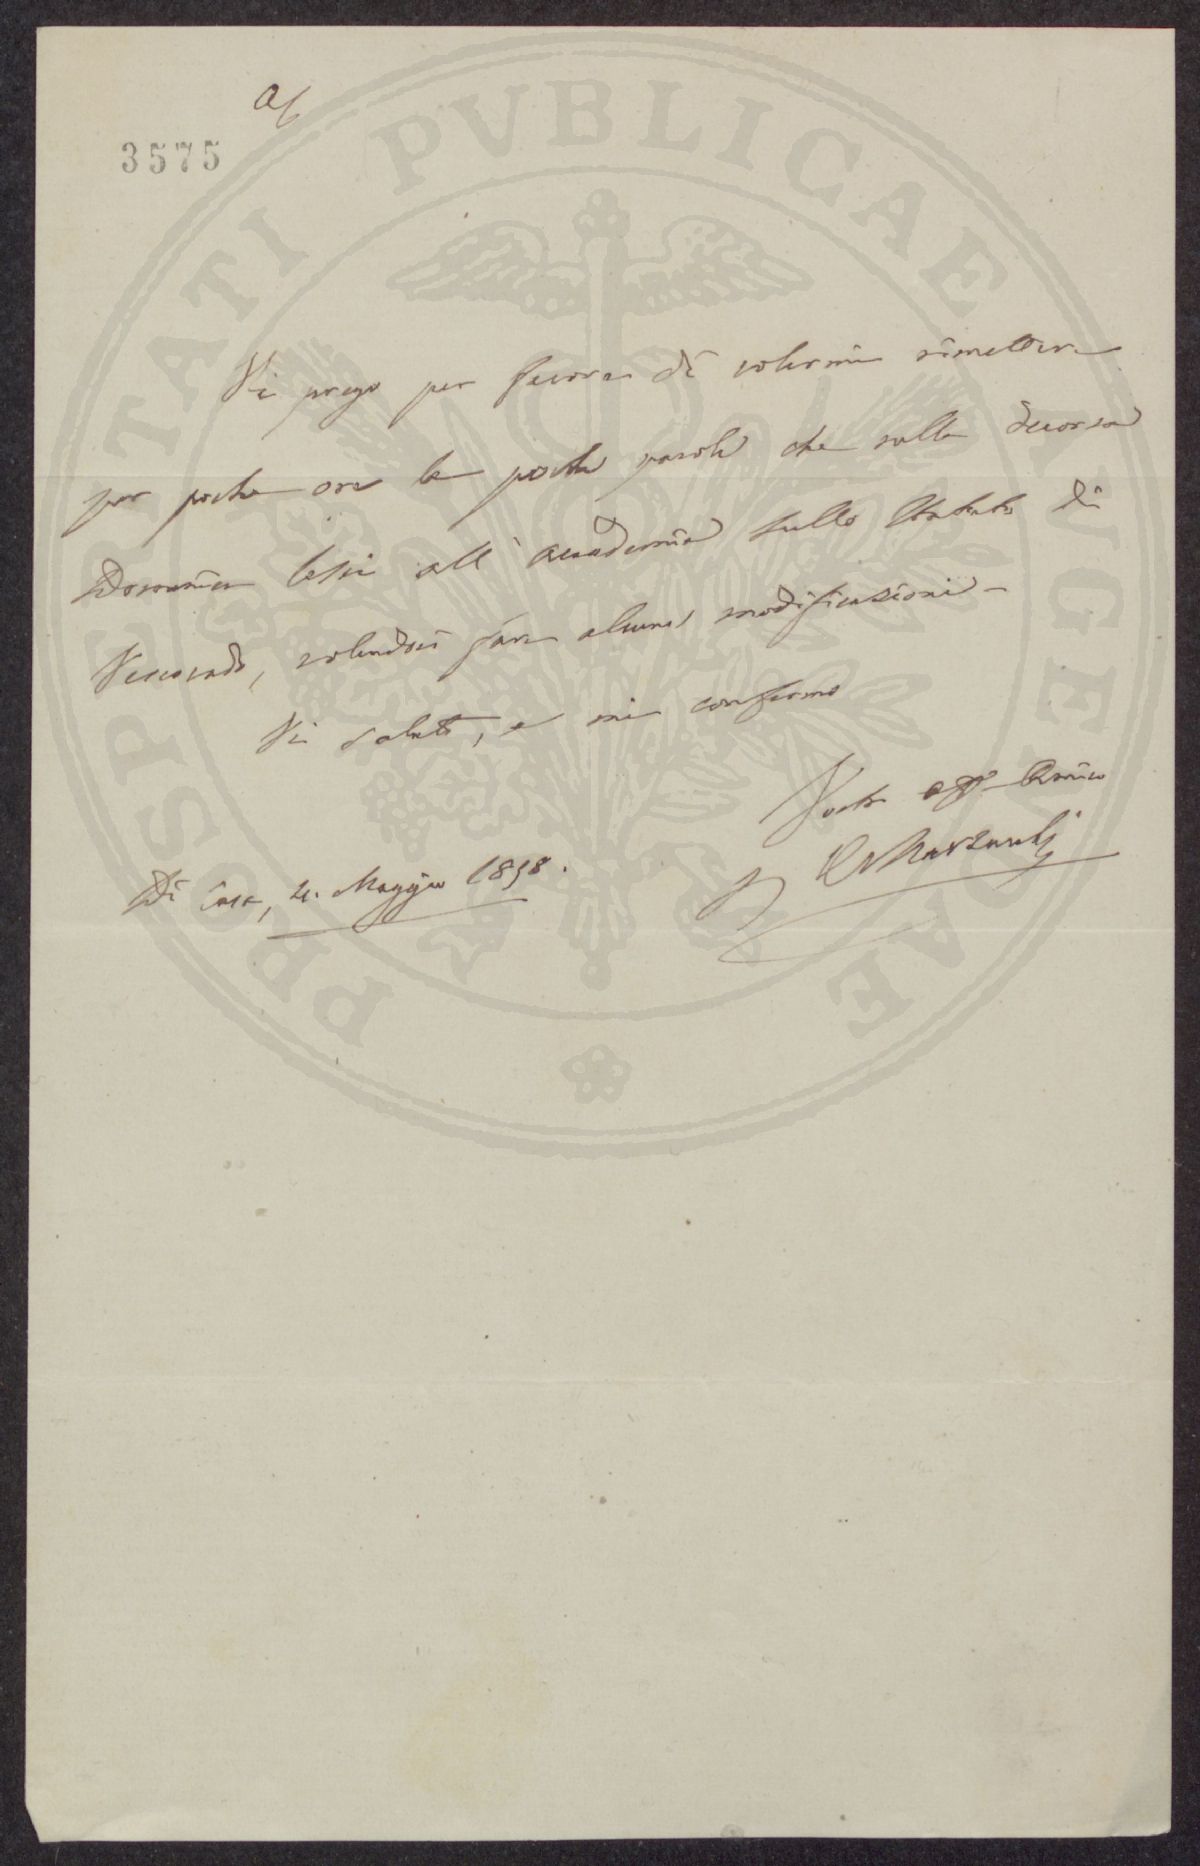 3575
Vi prego per favore di volermi rimettere
per poche ore le poche parole che nella decorsa
Domenica lessi all'Accademia sullo Statuto di
Vescovado, volendoci fare alcune modificazioni -
Vi saluto, e mi confermo
Di Casa, 4. Maggio 1858.
Vostro aff. Amico
PROSPERITATI PVBLICAE AVGENDAE